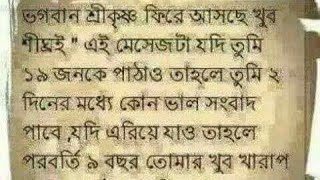 ভগবান শ্রীকৃষ্ণ ফিরে আসছে খুব
শীঘ্রই " এই মেসেজটা যদি তুমি
১৯ জনকে পাঠাও তাহলে তুমি ২
দিনের মধ্যে কোন ভাল সংবাদ
পাবে ,যদি এরিয়ে যাও তাহলে
পরবর্তি ৯ বছর তোমার খুব খারাপ